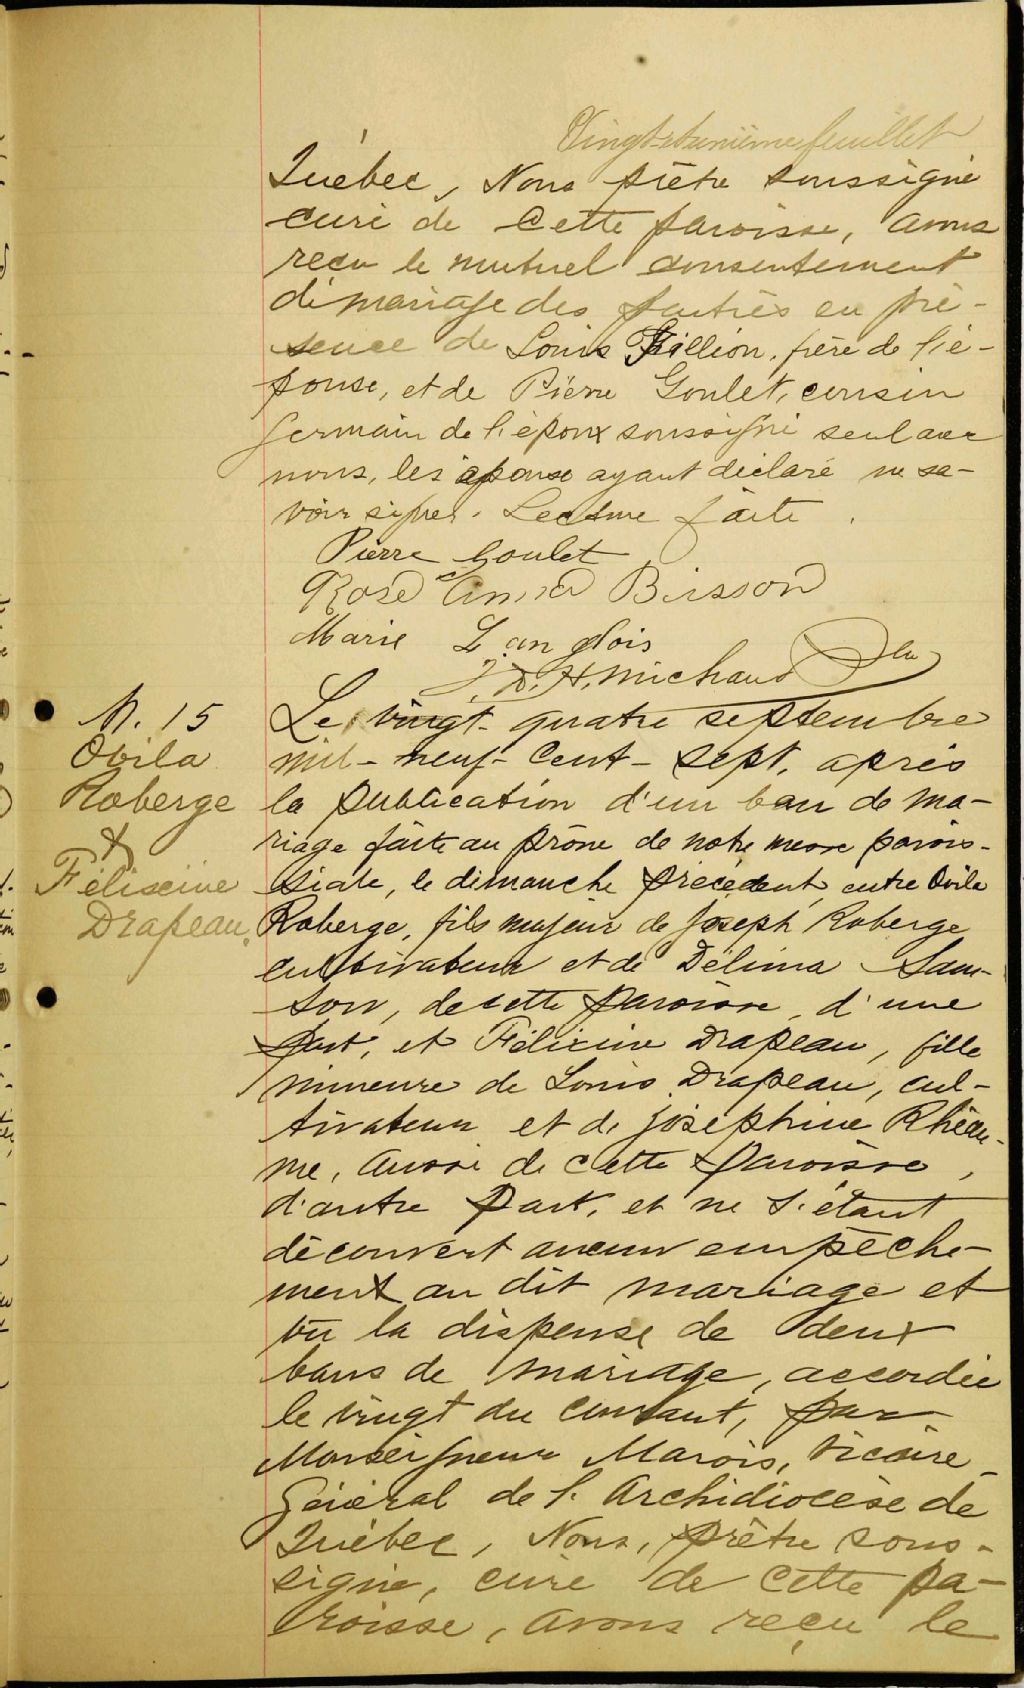 Vingt et unième feuillet
Québec, Nous prêtre soussigné
curé de cette paroisse, avons
recu le mutuel consentement
de mariage des parties en pré-
sence de Louis Fillion, frère de l'é-
pouse, et de Pierre Goulet, cousin
germain de l'époux soussigné seul avec
nous, les épouse ayant déclaré ne sa-
voir signer. Lecture faite.
Pierre Goulet
Rose Anna Bisson
Marie Langlois
J. D. H. Michaud Ptre
N. 15
Ovila
Roberge
&
Féliscine
Drapeau.
Le vingt-quatre septembre
mil-neuf-cent-sept, après
la publication d'un ban de ma-
riage faite au prône de notre messe parois-
siale, le dimanche précédent, entre Ovila
Roberge, fils majeur de Joseph Roberge
cultivateur et de Délima Sam-
son, de cette paroisse, d'une
part, et Félixine Drapeau, fille
mineure de Louis Drapeau, cul-
tivateur et de Joséphine Rhéau-
me, aussi de cette paroisse,
d'autre part, et ne s'étant
découvert aucun empêche-
ment au dit mariage et
vu la dispense de deux
bans de mariage, accordée
le vingt du courant, par
Monseigneur Marois, Vicaire
Général de l'Archidiocèse de
Québec, Nous, prêtre sous-
signé, curé de cette pa-
roisse, avons reçu le